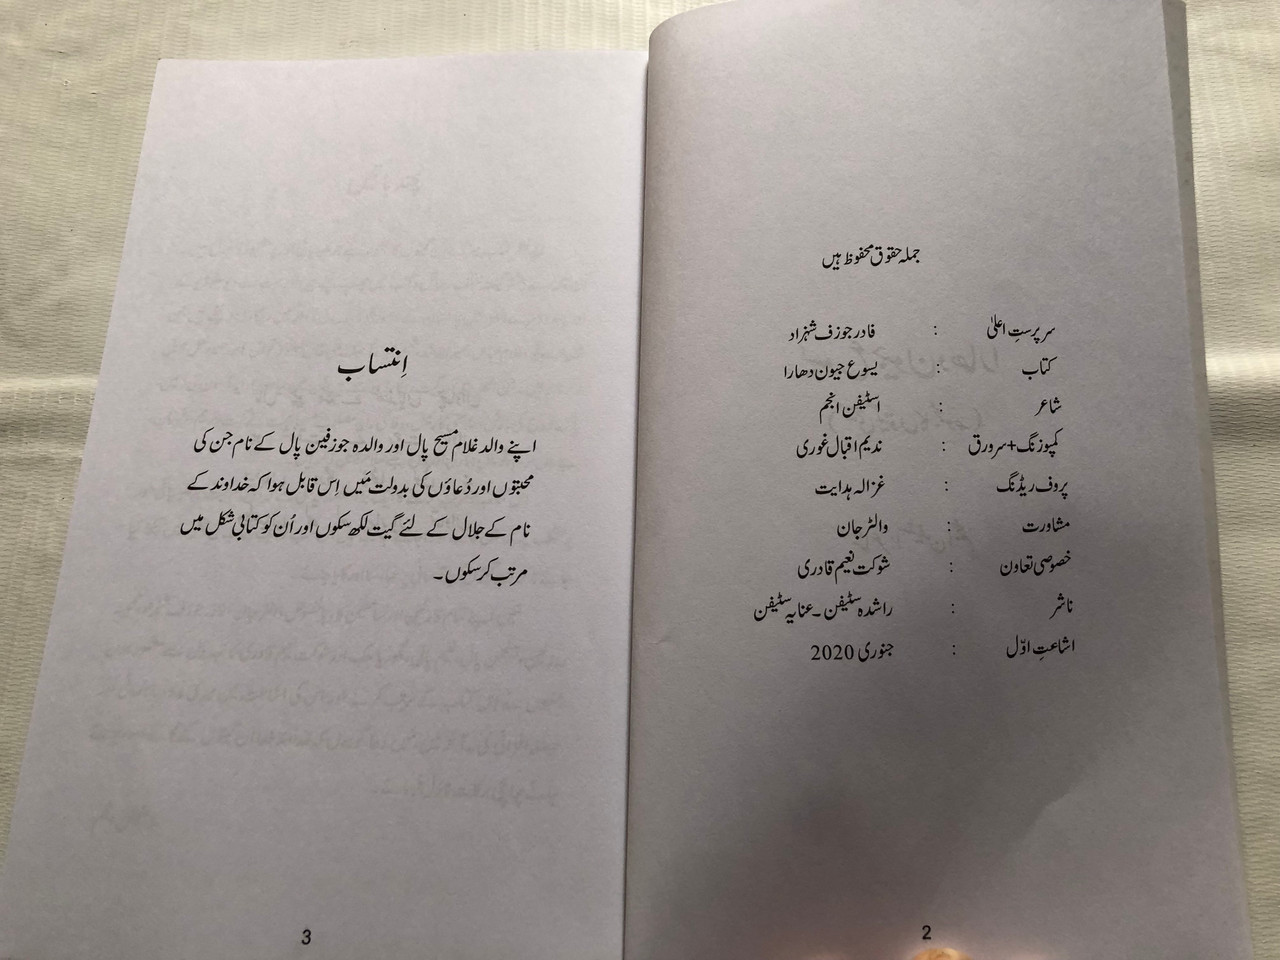 جملہ حقوق محفوظ ہیں
سرپرستِ اعلیٰ : فادر جوزف شہزاد
کتاب : یسوع جیون دھارا
شاعر : اسٹیفن انجم
کمپوزنگ+سرورق : ندیم اقبال غوری
پروف ریڈنگ : غزالہ ہدایت
مشاورت : والٹر جان
خصوصی تعاون : شوکت نعیم قادری
ناشر : راشدہ سٹیفن ۔ عنایہ سٹیفن
اشاعتِ اوّل : جنوری 2020
2
اِنتساب
اپنے والد غلام مسیح پال اور والدہ جوزفین پال کے نام جن کی
محبتوں اور دُعاؤں کی بدولت مَیں اِس قابل ہوا کہ خداوند کے
نام کے جلال کے لئے گیت لکھ سکوں اور اُن کو کتابی شکل میں
مرتب کر سکوں ۔
3